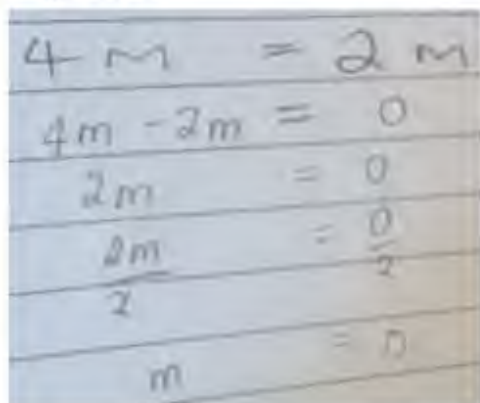 4 m = 2 m
4m - 2m = 0
2m = 0
2m/2 = 0/2
m = 0